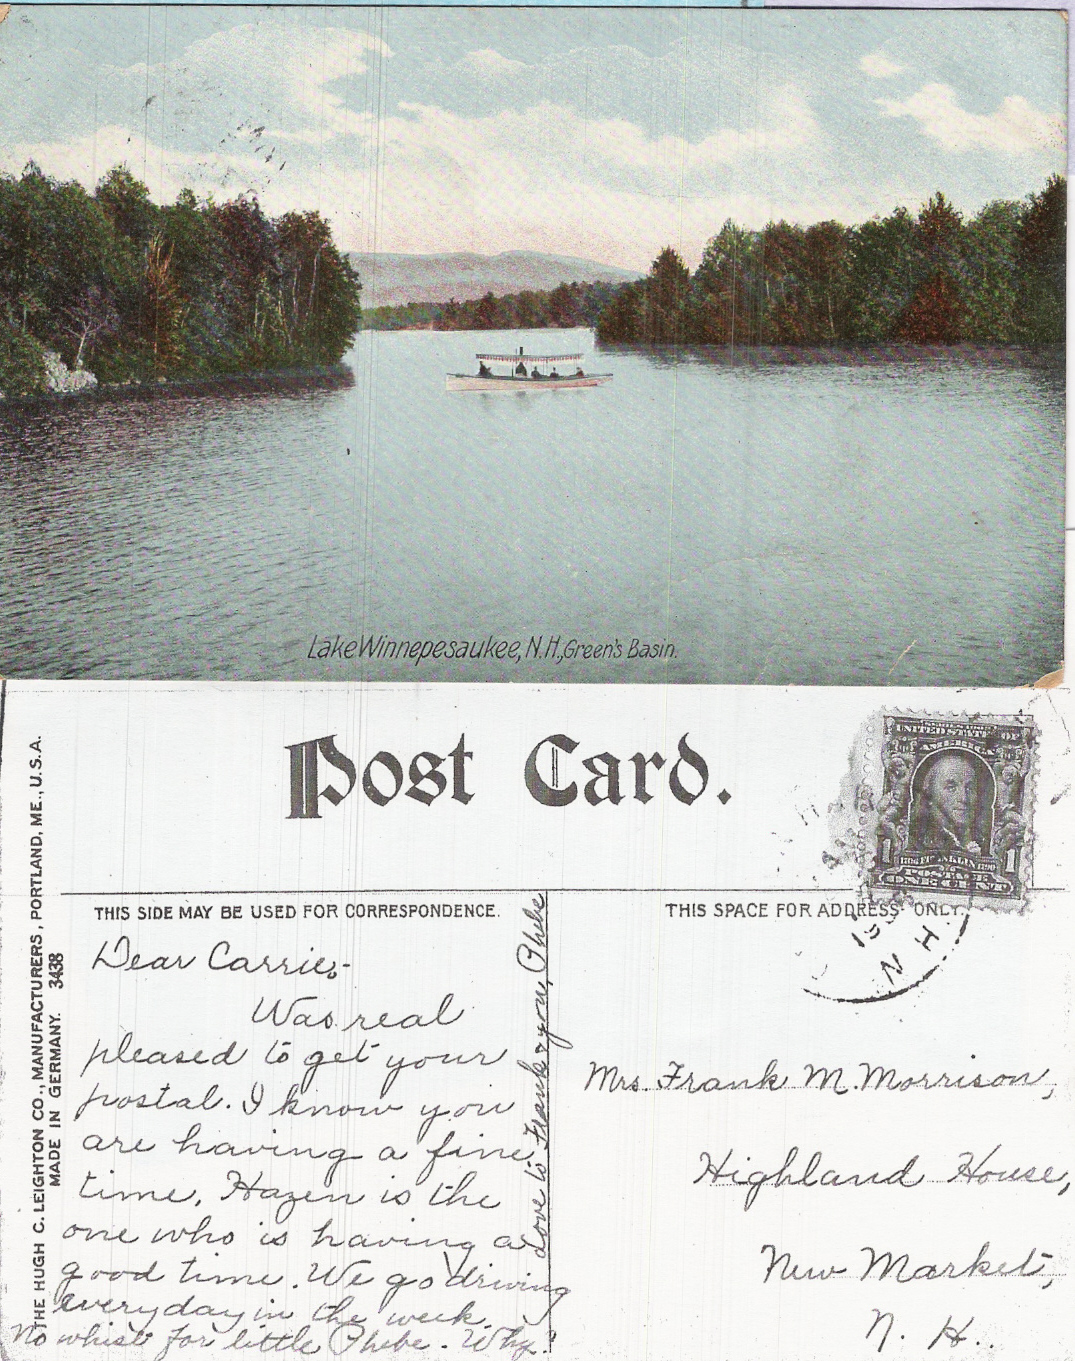 Lake Winnepesaukee, N.H., Green's Basin.
Post Card.
THE HUGH C. LEIGHTON CO., MANUFACTURERS, PORTLAND, ME., U.S.A.
MADE IN GERMANY. 3438
UNITED STATES OF
AMERICA
FRANKLIN
POSTAGE
1 ONE CENT 1
N H
THIS SIDE MAY BE USED FOR CORRESPONDENCE.
THIS SPACE FOR ADDRESS ONLY.
Dear Carrie:-
Was real
pleased to get your
postal. I know you
are having a fine
time, Hazen is the
one who is having a
good time. We go driving
everyday in the week.
No whist for little Phebe. Why?
Love to Frank & you, Phebe
Mrs. Frank M. Morrison,
Highland House,
New Market,
N. H.